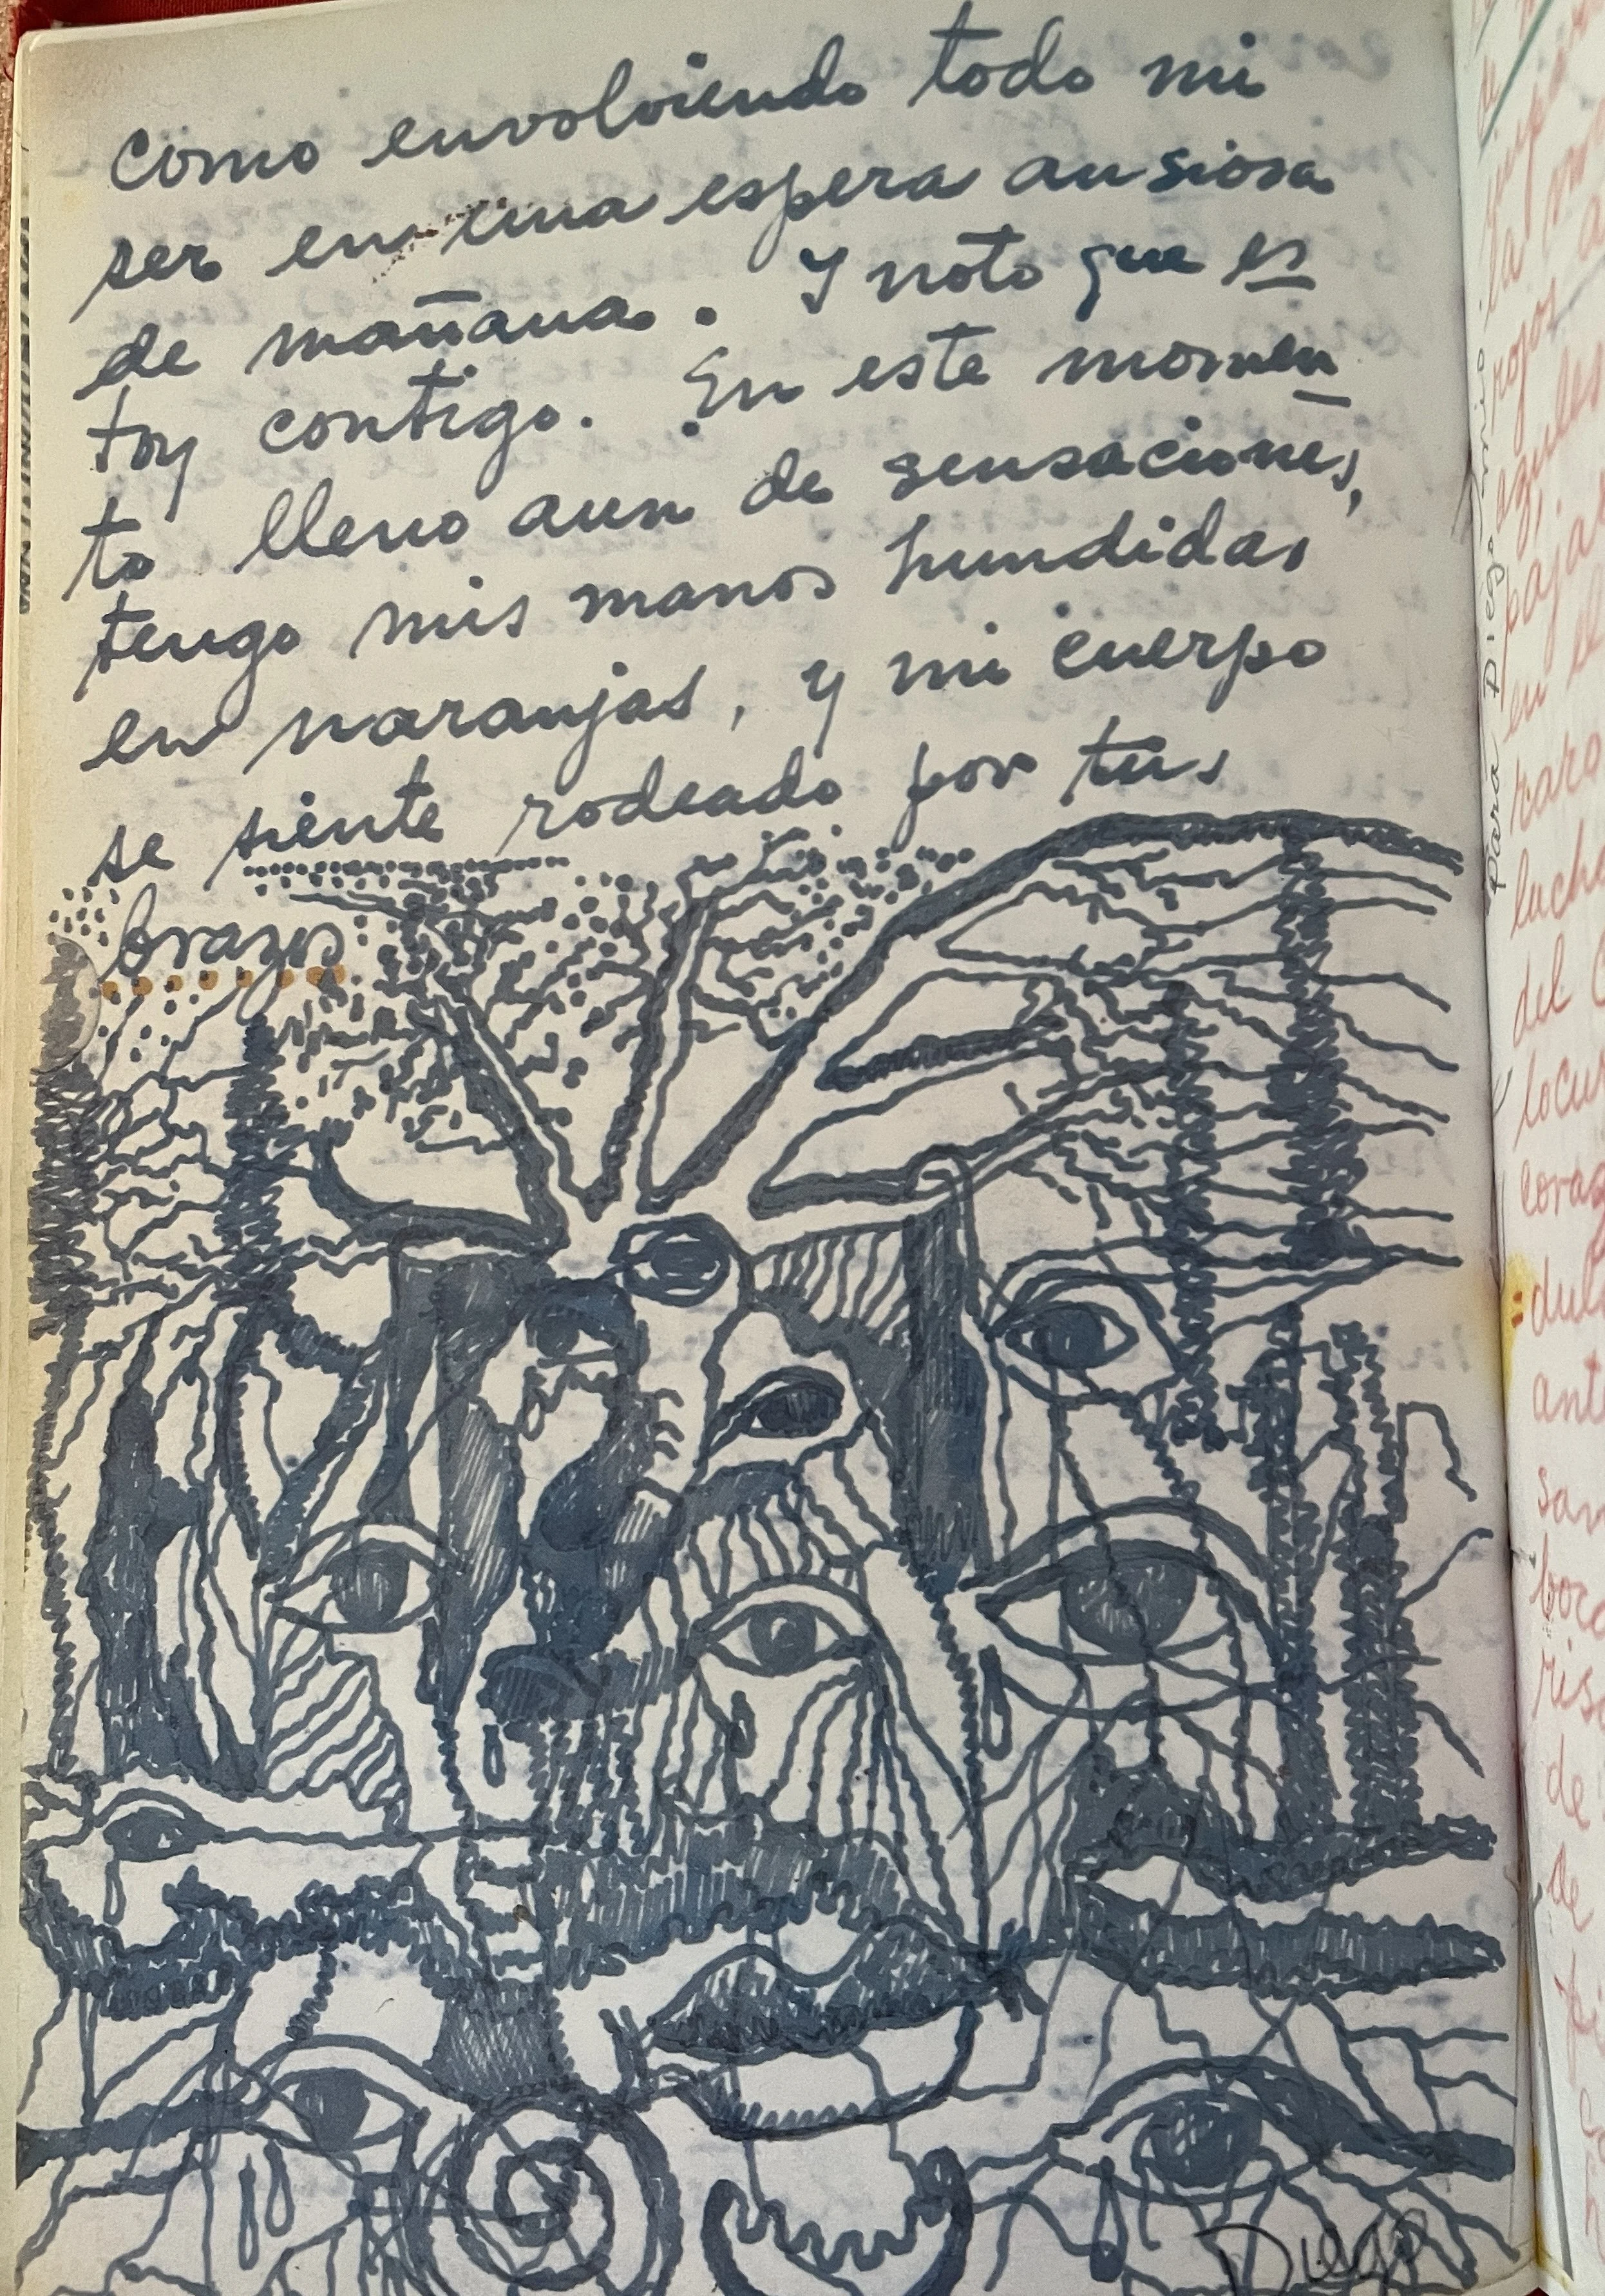 como envolviendo todo mi
ser en una espera ansiosa
de mañana. Y noto que es
toy contigo. En este momen
to lleno aun de sensaciones,
tengo mis manos hundidas
en naranjas, y mi cuerpo
se siente rodeado por tus
brazos
Diego
para Diego
la
rojos
azules
en el
raro
del
=dul
ant
de
de